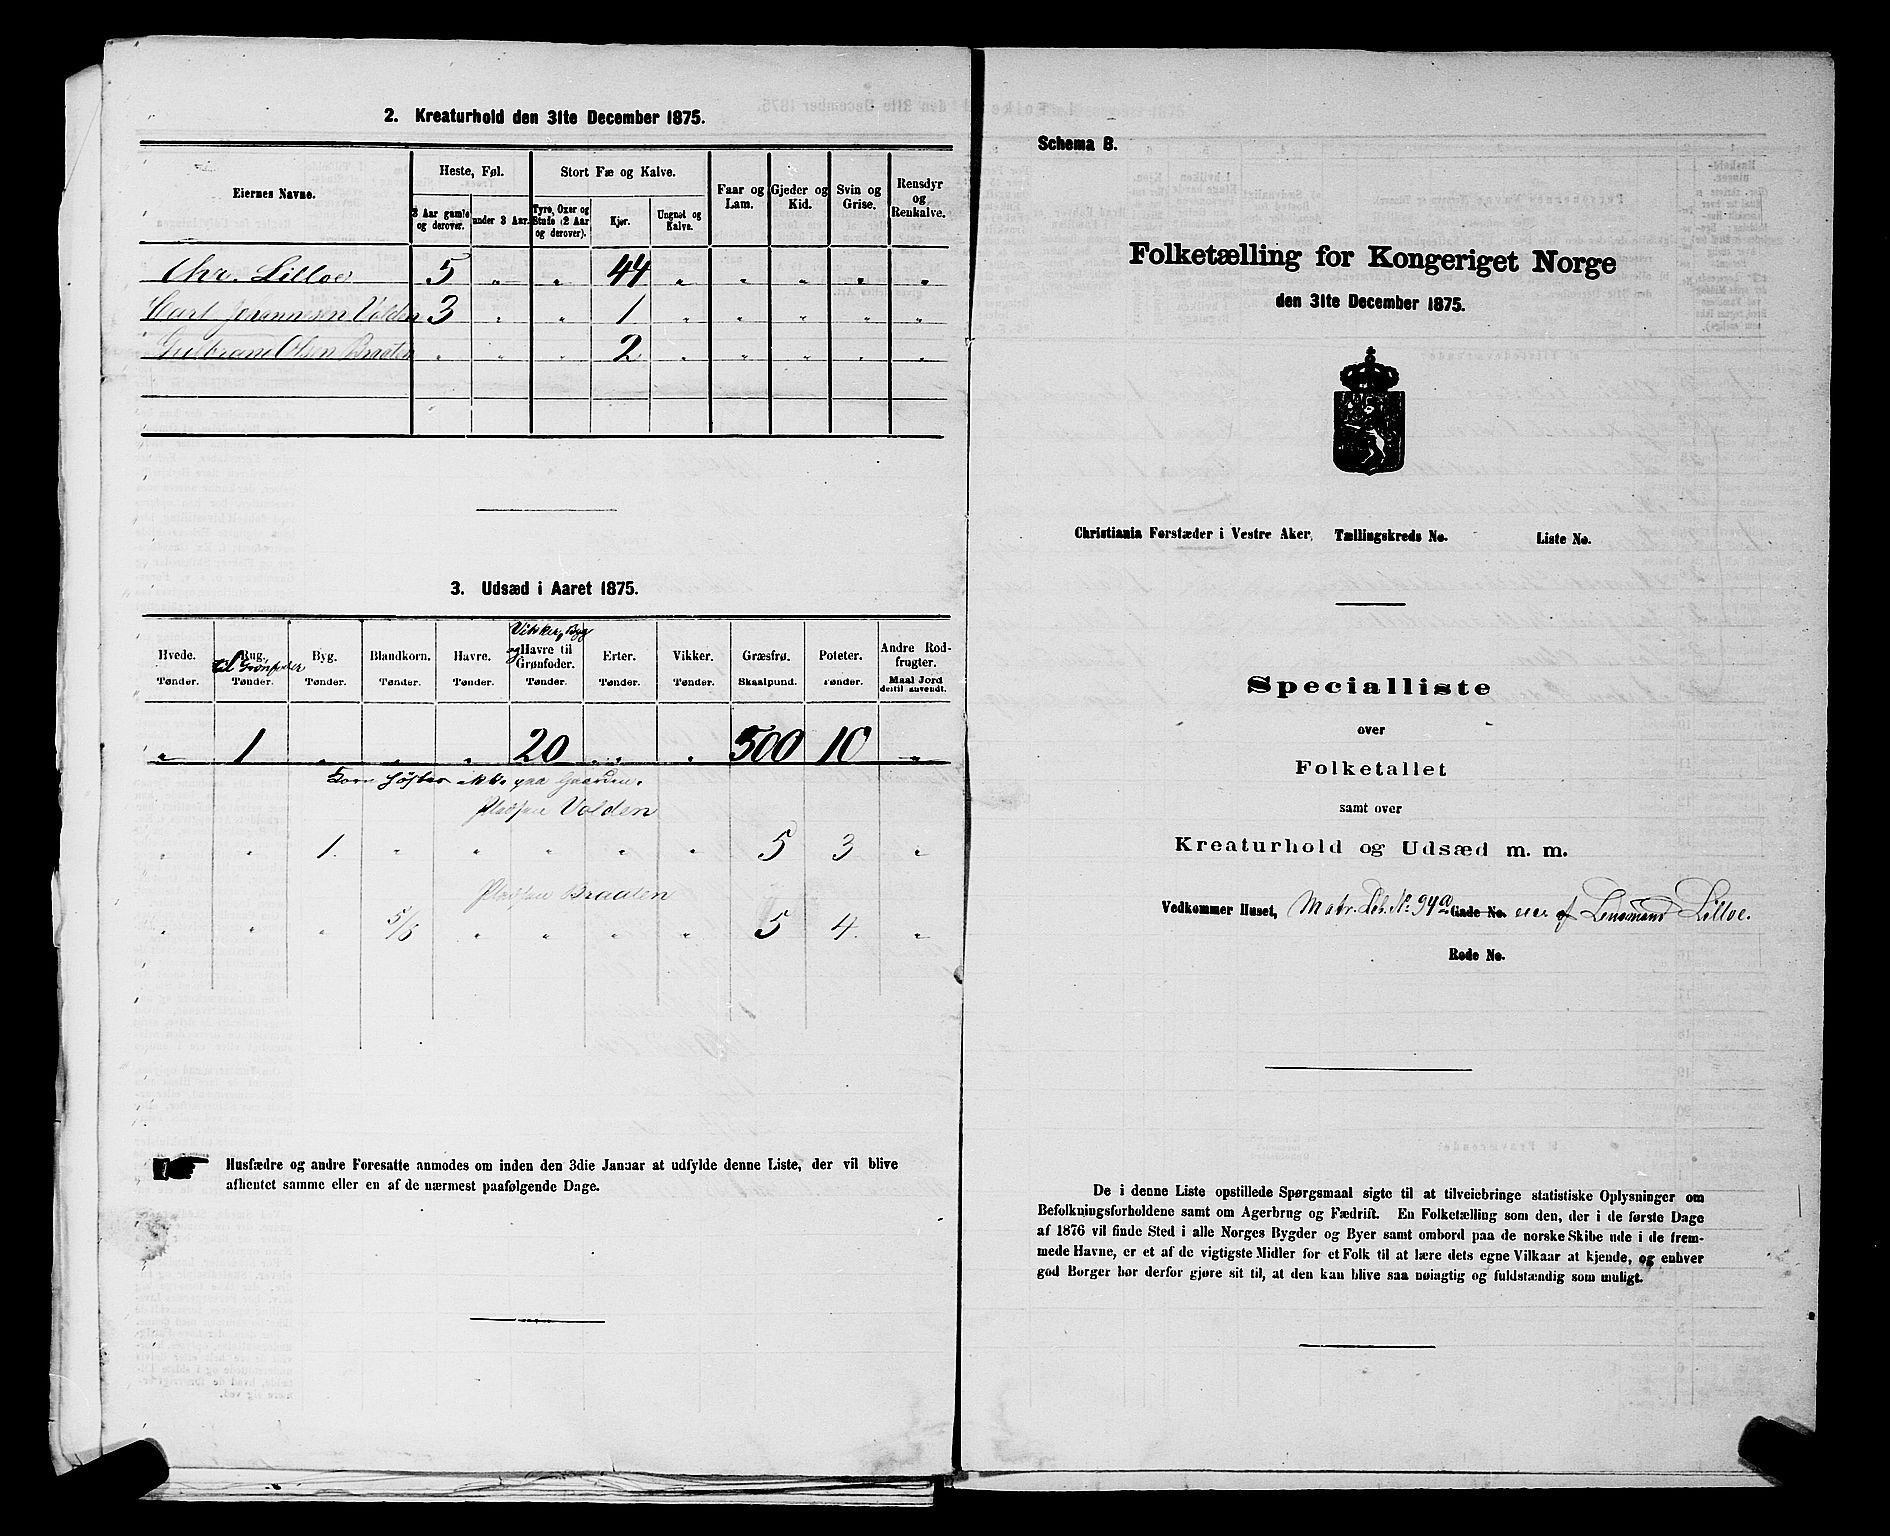 2. Kreaturhold den 31te December 1875.
Eiernes Navne. Heste, Føl. Stort Fæ og Kalve. Faar og Lam. Gjeder og Kid. Svin og Grise. Rensdyr og Renkalve.
3 Aar gamle og derover. under 3 Aar. Tyre, Oxer og Stude (2 Aar og derover). Kjør. Ungnøt og Kalve.
Chr. Lilloe 5 " " 44 " " " " "
Carl Johannsen Volden 3 " " 1 " " " " "
Gulbrand Olsen Braaten " " " 2 " " " " "
3. Udsæd i Aaret 1875.
Hvede. Rug. Byg. Blandkorn. Havre. Vikker, Byg og Havre til Grønfoder. Erter. Vikker. Græsfrø. Poteter. Andre Rodfrugter.
til Grønfoder
Tønder. Tønder. Tønder. Tønder. Tønder. Tønder. Tønder. Tønder. Skaalpund. Tønder. Maal Jord dertil anvendt.
" 1 " " " 20 " " 500 10 "
Korn høstes ikke paa Gaarden.
Pladsen Volden
" " 1. " " " " " 5 3 "
Pladsen Braaten
" " " 5/8 " " " " 5 4. "
Husfædre og andre Foresatte anmodes om inden den 3die Januar at udfylde denne Liste, der vil blive
afhentet samme eller en af de nærmest paafølgende Dage.
Schema B.
Folketælling for Kongeriget Norge
den 31te December 1875.
Christiania Forstæder i Vestre Aker, Tællingskreds No. Liste No.
Specialliste
over
Folketallet
samt over
Kreaturhold og Udsæd m. m.
Vedkommer Huset, Matr. Løb. No. 94a Gade No. eier af Lensmand Lilloe.
Rode No.
De i denne Liste opstillede Spørgsmaal sigte til at tilveiebringe statistiske Oplysninger om
Befolkningsforholdene samt om Agerbrug og Fædrift. En Folketælling som den, der i de første Dage
af 1876 vil finde Sted i alle Norges Bygder og Byer samt ombord paa de norske Skibe ude i de frem-
mede Havne, er et af de vigtigste Midler for et Folk til at lære dets egne Vilkaar at kjende, og enhver
god Borger bør derfor gjøre sit til, at den kan blive saa nøiagtig og fuldstændig som muligt.